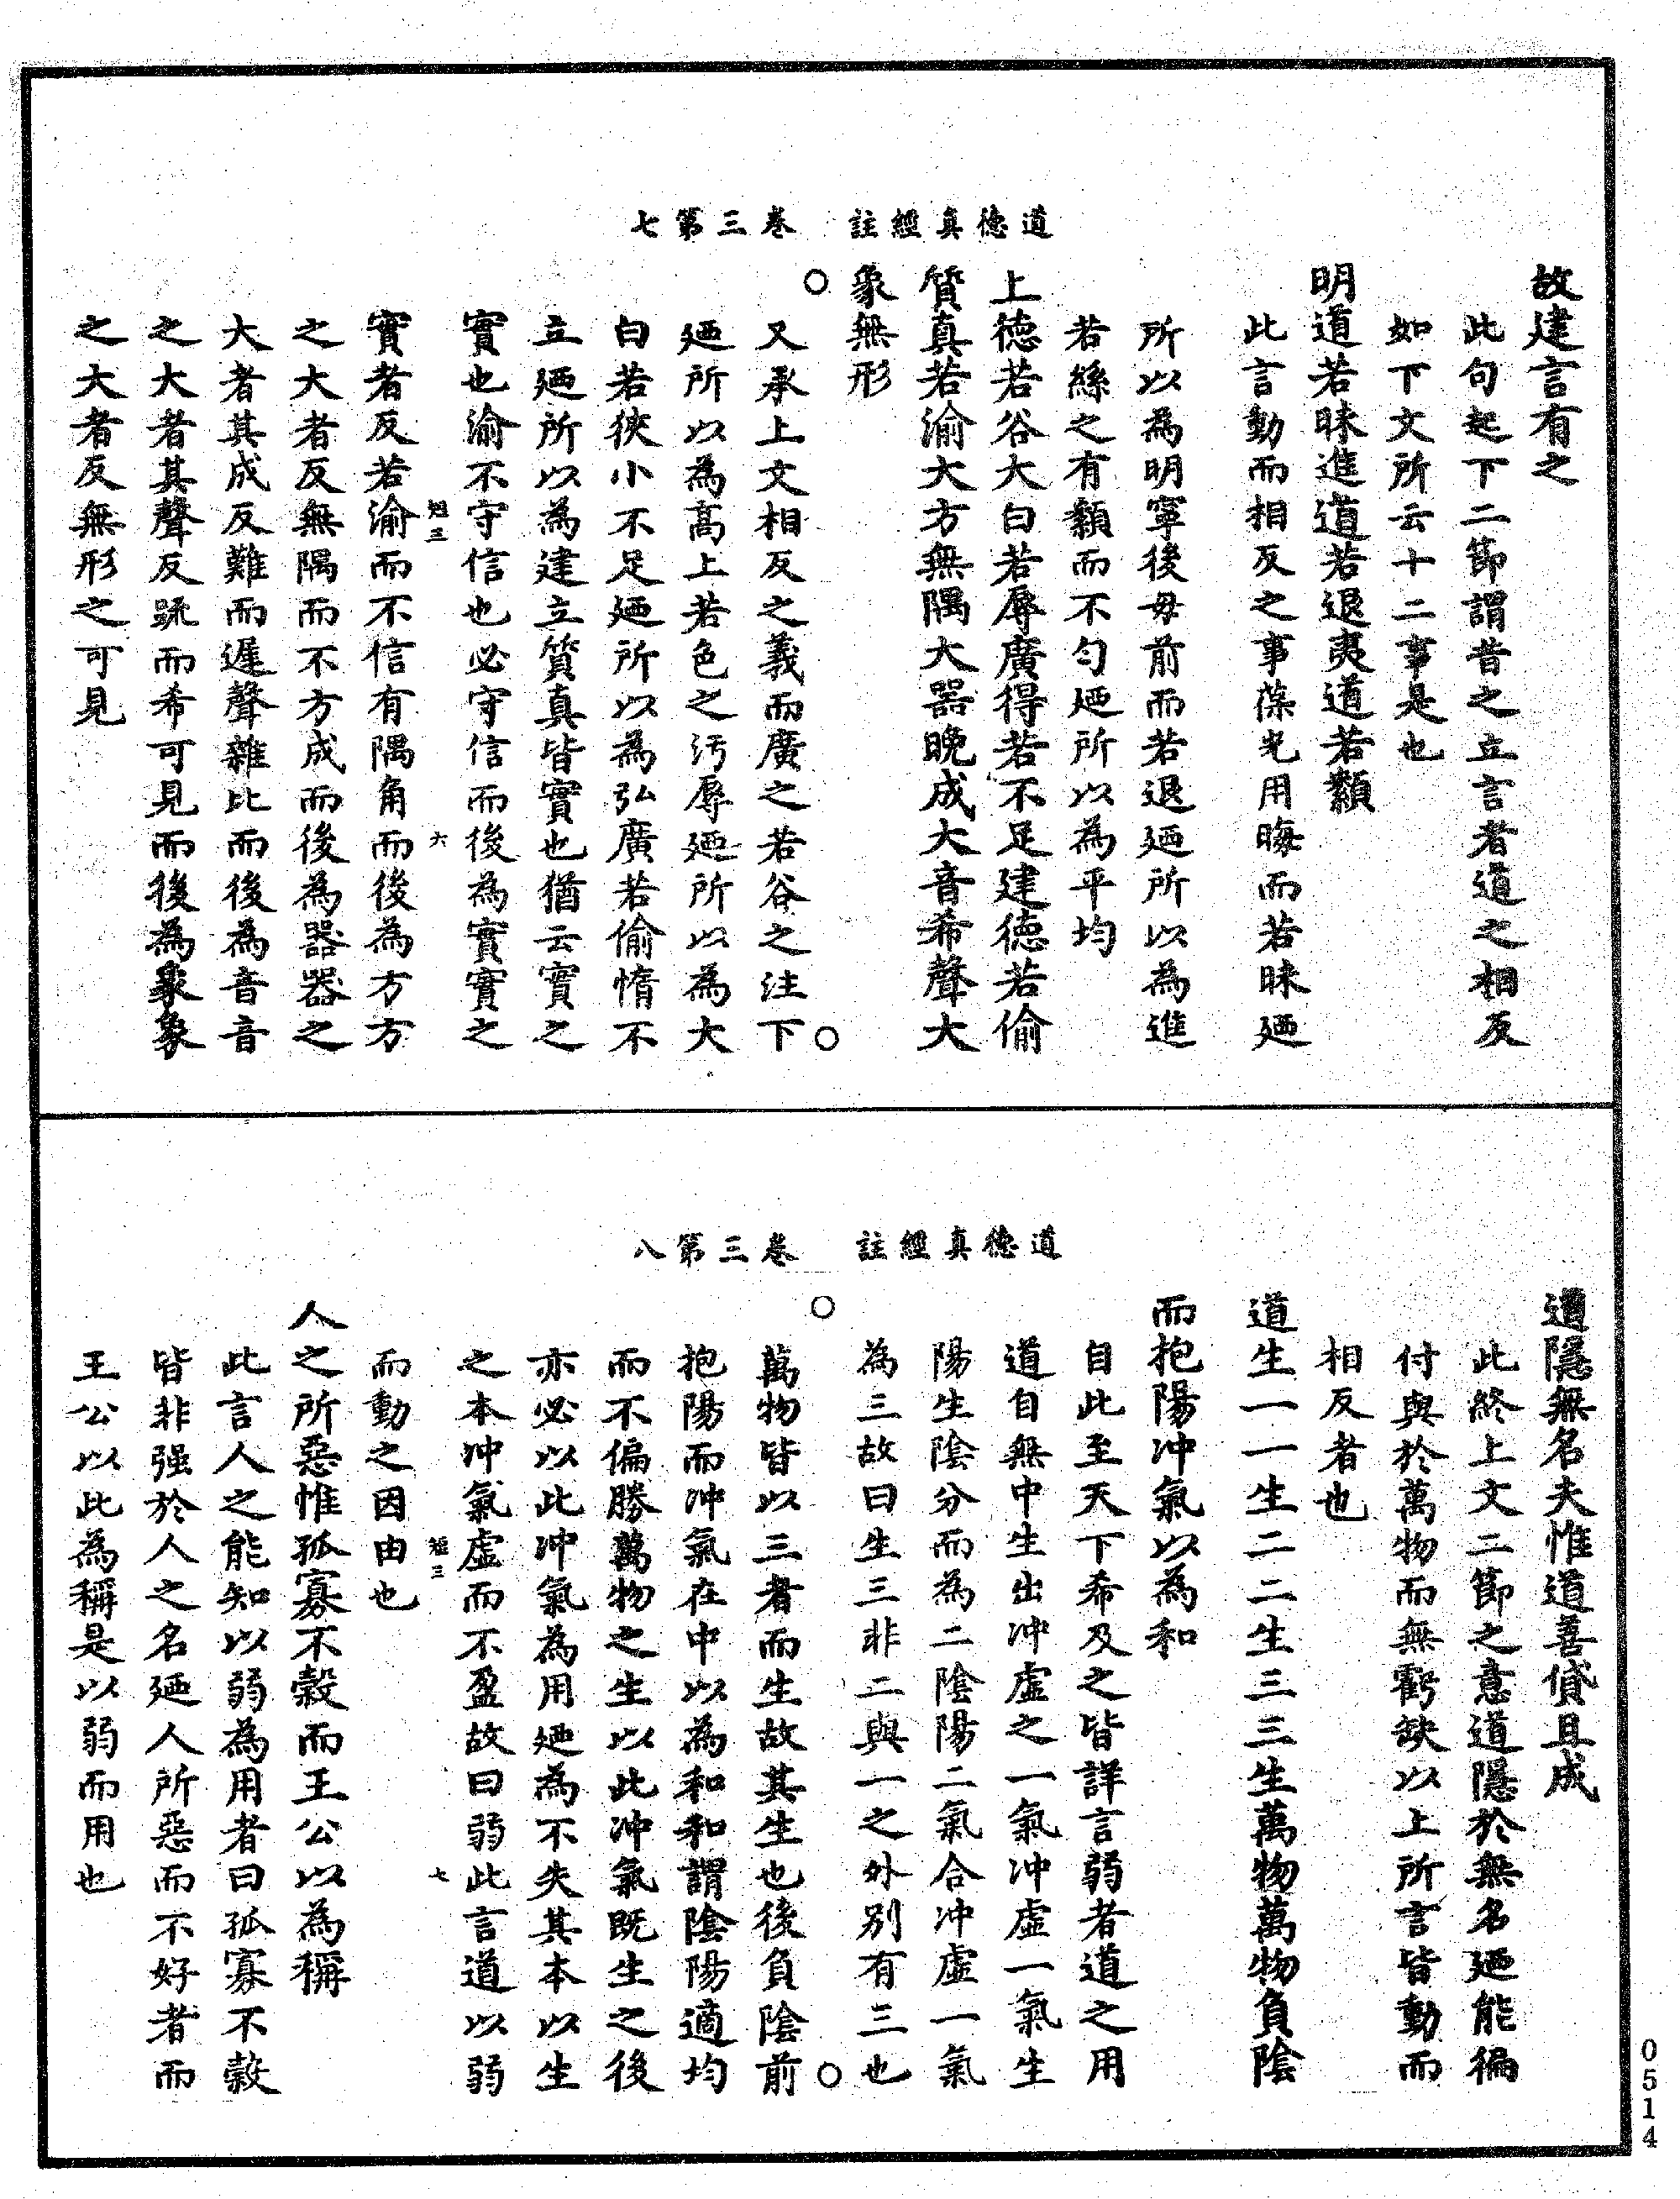 道德真經註　卷三第七
故建言有之
此句起下二節謂昔之立言者道之相反
如下文所云十二事是也
明道若昧進道若退夷道若纇
此言動而相反之事葆光用晦而若昧廼
所以為明寧後毋前而若退廼所以為進
若絲之有纇而不勻廼所以為平均
上德若谷大白若辱廣得若不足建德若偷
質真若渝大方無隅大器晚成大音希聲大
象無形
○
又承上文相反之義而廣之若谷之注下
廼所以為高上若色之污辱廼所以為大
白若狹小不足廼所以為弘廣若偷惰不
立廼所以為建立質真皆實也猶云實之
實也渝不守信也必守信而後為實實之
短三
六
實者反若渝而不信有隅角而後為方方
之大者反無隅而不方成而後為器器之
大者其成反難而遲聲雜比而後為音音
之大者其聲反疏而希可見而後為象象
之大者反無形之可見
○
道德真經註　卷三第八
道隱無名夫惟道善貸且成
此終上文二節之意道隱於無名廼能徧
付與於萬物而無虧缺以上所言皆動而
相反者也
道生一一生二二生三三生萬物萬物負陰
而抱陽冲氣以為和
自此至天下希及之皆詳言弱者道之用
道自無中生出冲虛之一氣冲虛一氣生
陽生陰分而為二陰陽二氣合冲虛一氣
為三故曰生三非二與一之外別有三也
○
萬物皆以三者而生故其生也後負陰前
抱陽而冲氣在中以為和和謂陰陽適均
而不偏勝萬物之生以此冲氣既生之後
亦必以此冲氣為用廼為不失其本以生
之本冲氣虛而不盈故曰弱此言道以弱
短三
七
而動之因由也
人之所惡惟孤寡不穀而王公以為稱
此言人之能知以弱為用者曰孤寡不穀
皆非强於人之名廼人所惡而不好者而
王公以此為稱是以弱而用也
○
0514